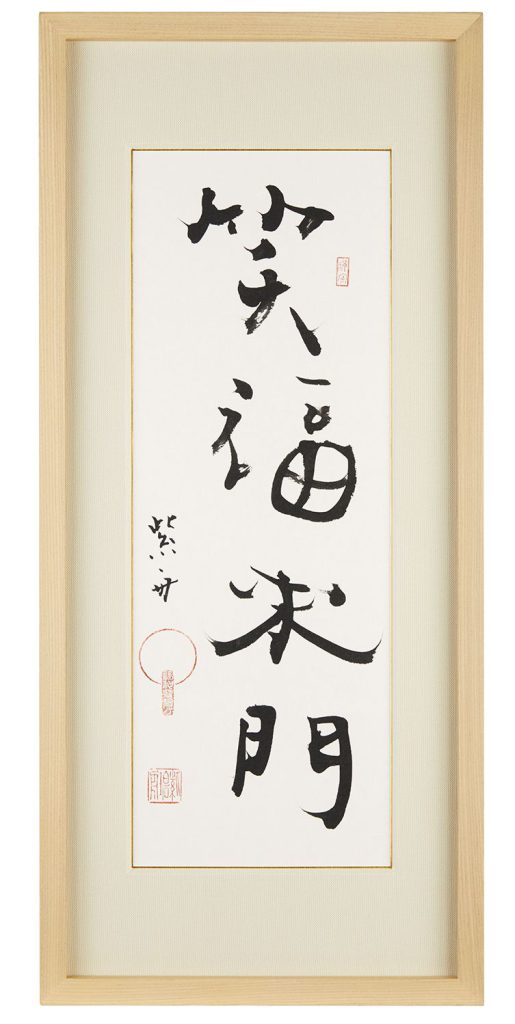 笑福来門
紫舟